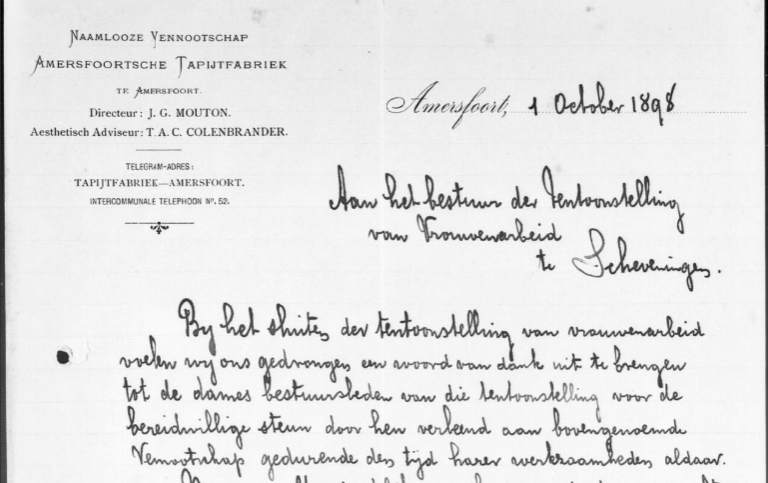 NAAMLOOZE VENNOOTSCHAP
AMERSFOORTSCHE TAPIJTFABRIEK
TE AMERSFOORT.
Directeur: J. G. MOUTON.
Aesthetisch Adviseur: T. A. C. COLENBRANDER.
TELEGRAM-ADRES:
TAPIJTFABRIEK—AMERSFOORT.
INTERCOMMUNALE TELEPHOON No. 52.
Amersfoort, 1 October 1898
Aan het bestuur der Tentoonstelling
van Vrouwenarbeid
te Scheveningen.
By het sluiten der tentoonstelling van vrouwenarbeid
voelen wy ons gedrongen een woord van dank uit te brengen
tot de dames bestuursleden van die tentoonstelling voor de
bereidwillige steun door hen verleend aan bovengenoemde
Vennootschap gedurende den tijd harer werkzaamheden aldaar.